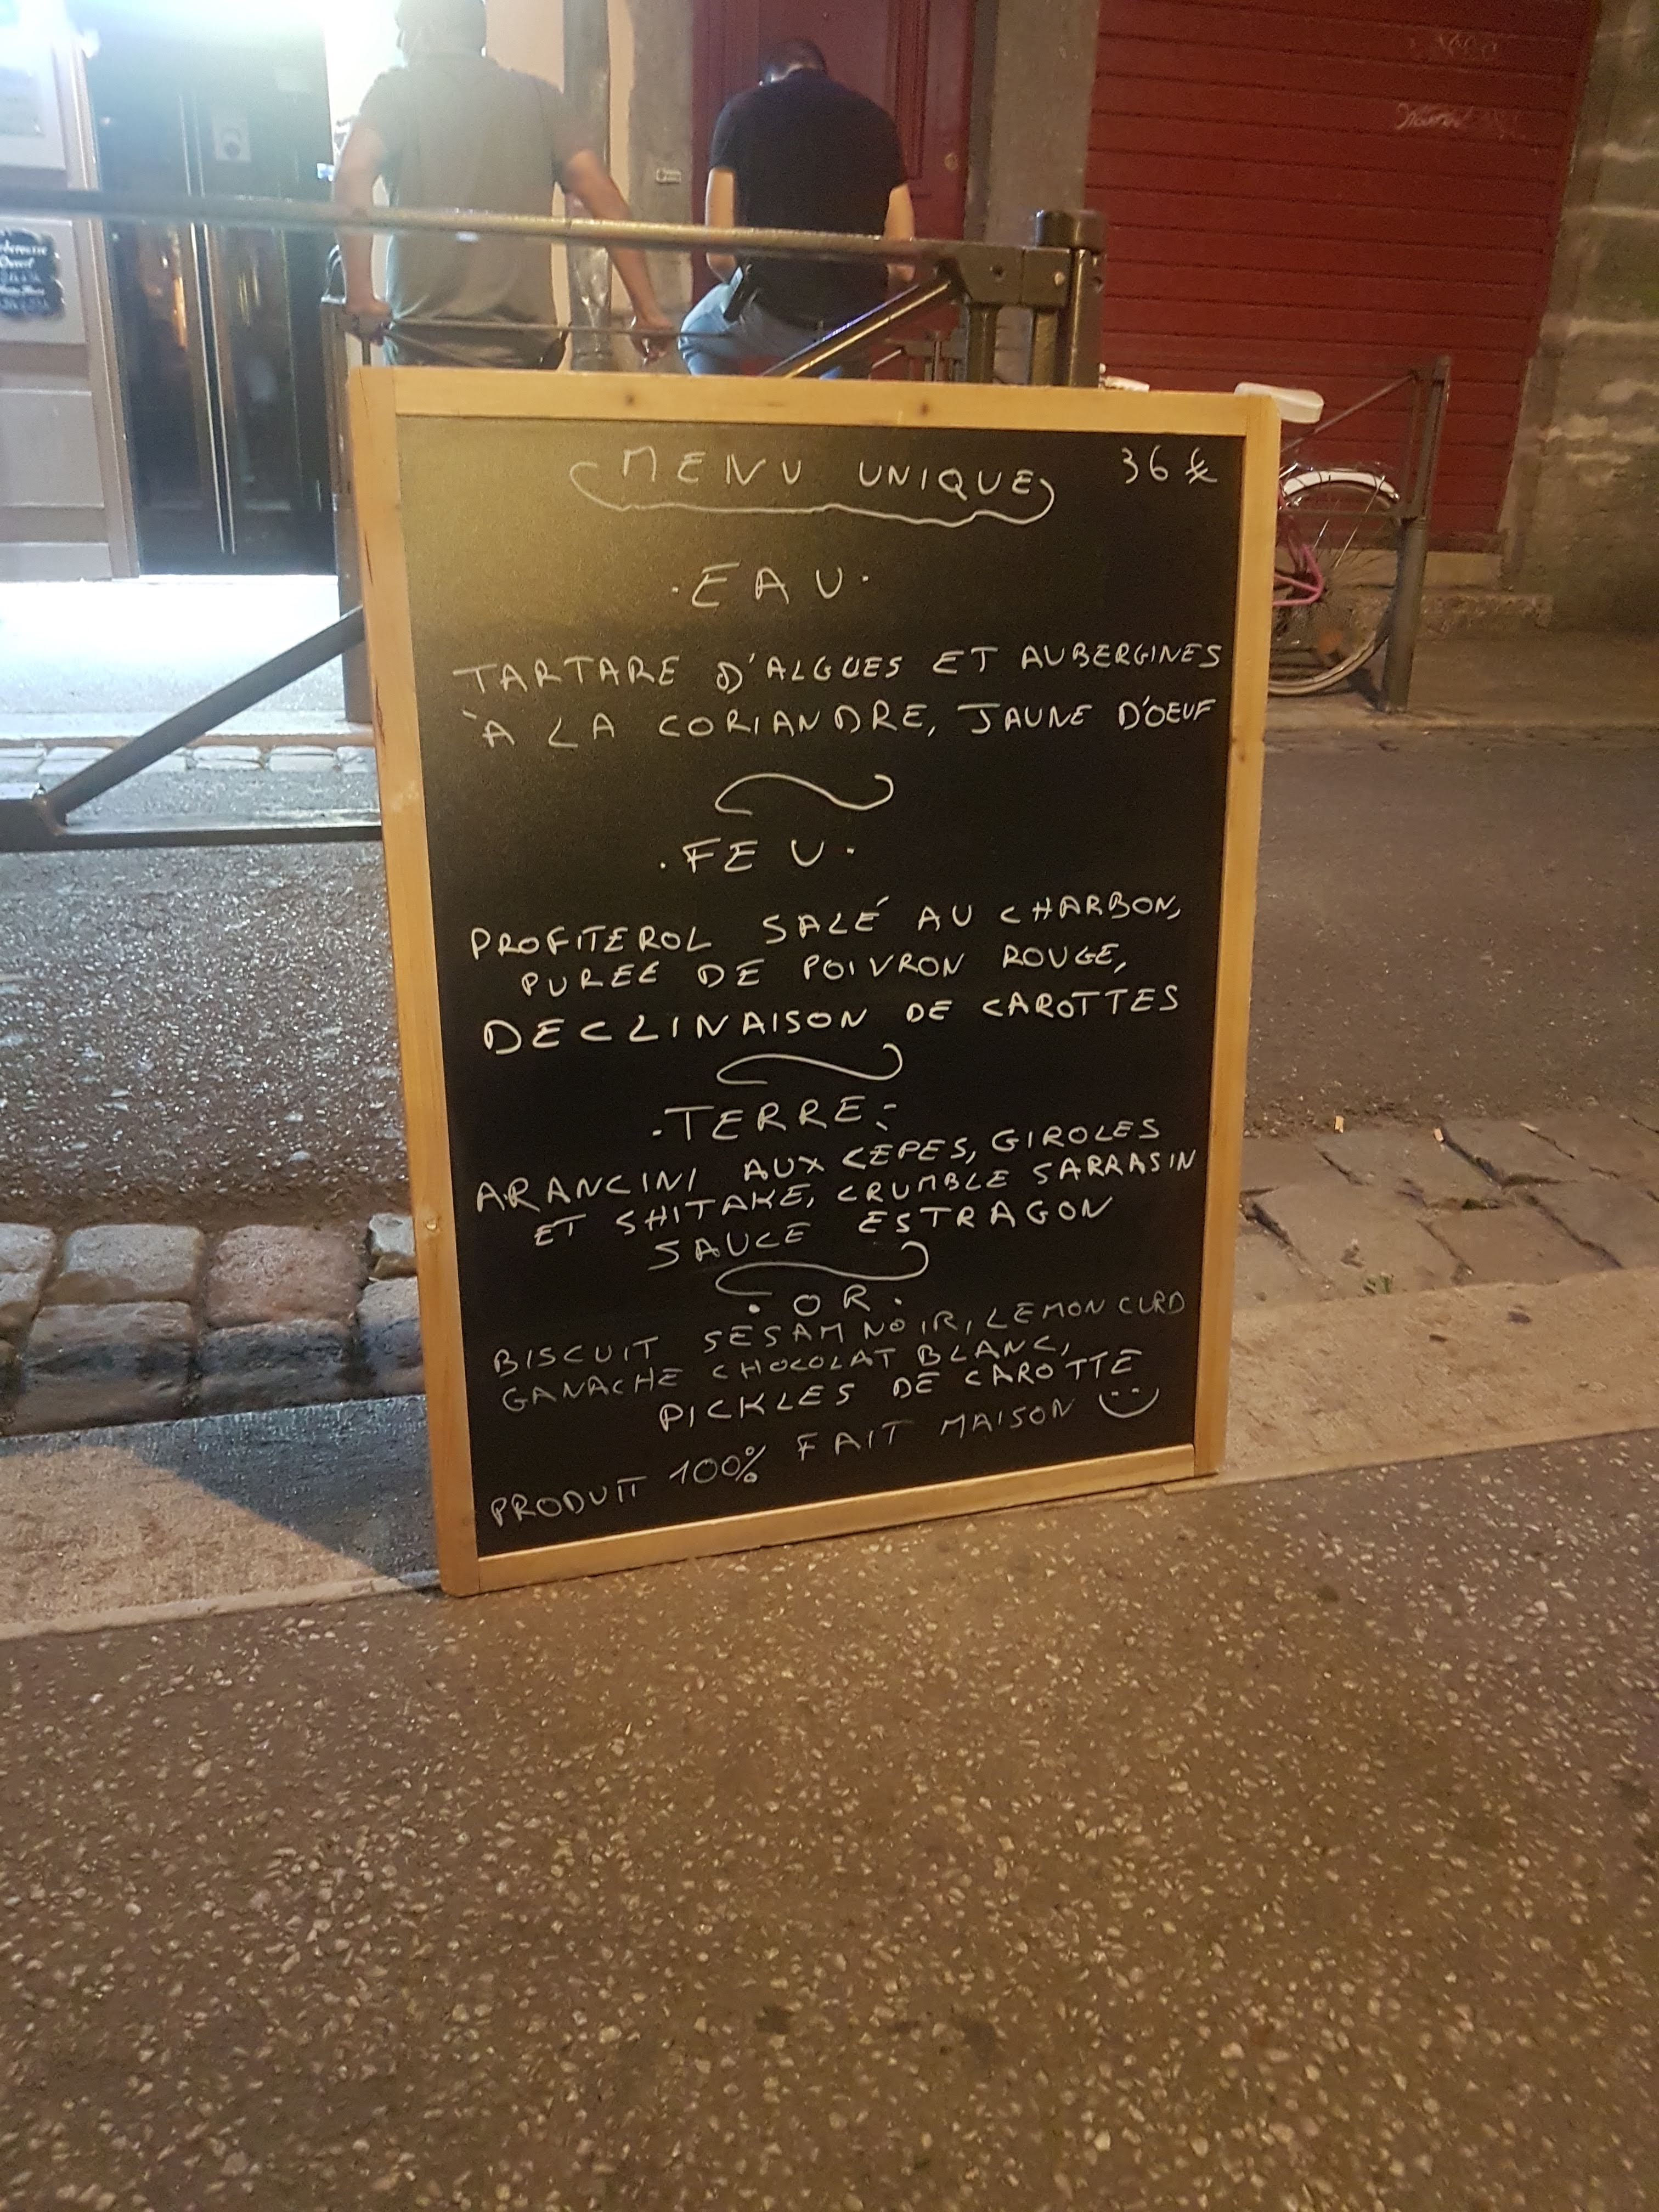 MENU UNIQUE 36 €
·EAU·
TARTARE D'ALGUES ET AUBERGINES
À LA CORIANDRE, JAUNE D'OEUF
·FEU·
PROFITEROL SALÉ AU CHARBON,
PUREE DE POIVRON ROUGE,
DECLINAISON DE CAROTTES
·TERRE·
ARANCINI AUX CEPES, GIROLES
ET SHITAKE, CRUMBLE SARRASIN
SAUCE ESTRAGON
·OR·
BISCUIT SESAM NOIR, LEMON CURD
GANACHE CHOCOLAT BLANC,
PICKLES DE CAROTTE
PRODUIT 100% FAIT MAISON